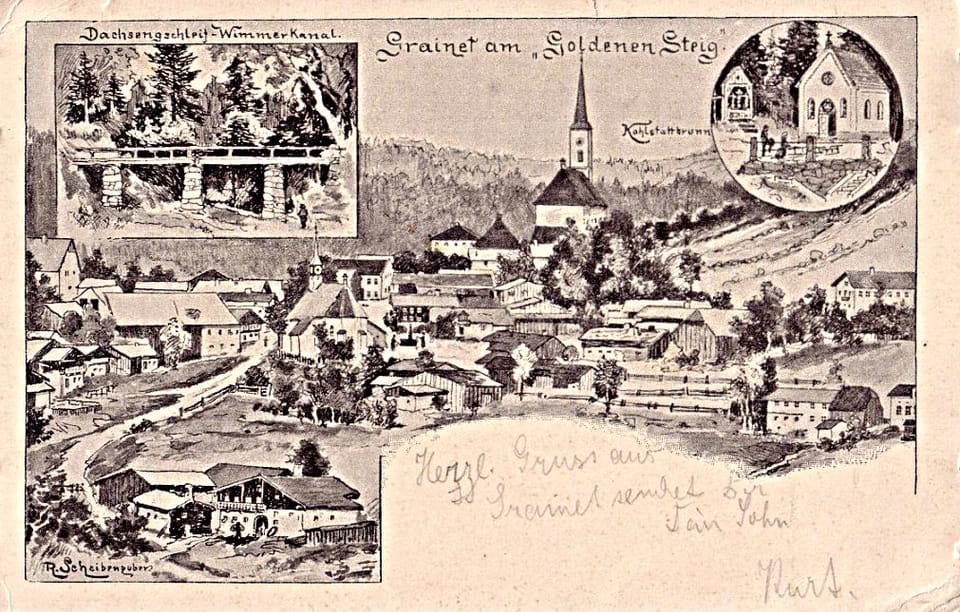 Dachsengschleif-Wimmerkanal.
Grainet am „Goldenen Steig".
Kohlstattbrunn
Herzl. Gruss aus
Grainet sendet Dir
Dein Sohn
Kurt.
R. Scheibenzuber